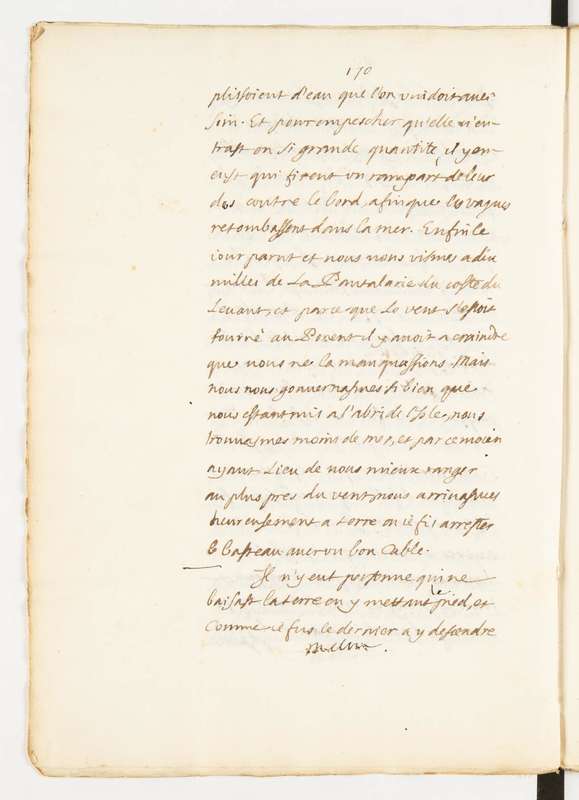 170
plissoient d'eau que l'on vuidoit avec
soin. Et pour empescher qu'elle n'en-
trast en si grande quantité, il y en
eust qui firent un rampart de leur
dos contre le bord, afin que les vagues
retombassent dans la mer. Enfin le
iour parut et nous nous vismes a dix
milles de La Pantalarie du costé du
Levant, et parce que Le vent s'estoit
tourné au Ponent il y avoit a craindre
que nous ne la manquassions. Mais
nous nous gouvernasmes si bien que
nous estant mis a l'abri de l'Isle, nous
trouvasmes moins de mer, et par ce moien
ayant Lieu de nous mieux ranger
au plus pres du vent, nous arrivasmes
heureusement a terre ou ie fis arrester
le basteau avec un bon Cable.
Il n'y eut personne qui ne
baisast la terre en y mettant le pied, et
comme ie fus le dernier a y descendre